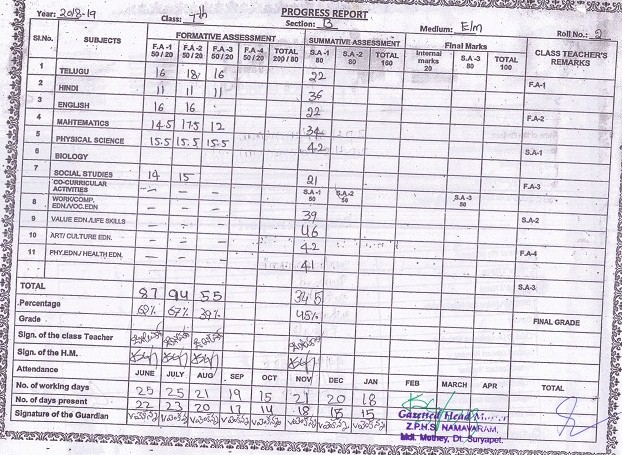 PROGRESS REPORT
Year: 2018-19 Class: 7th Section: B Medium: E/m Roll No.: 2
Sl.No. SUBJECTS FORMATIVE ASSESSMENT SUMMATIVE ASSESSMENT Final Marks CLASS TEACHER'S REMARKS
F.A -1 50 / 20 F.A -2 50 / 20 F.A -3 50 / 20 F.A -4 50 / 20 TOTAL 200 / 80 S.A -1 80 S.A -2 80 TOTAL 160 Internal marks 20 S.A -3 80 TOTAL 100
1 TELUGU 16 18 16 22 F.A-1
2 HINDI 11 11 11 36
3 ENGLISH 16 16 22 F.A-2
4 MAHTEMATICS 14.5 17.5 12 34
5 PHYSICAL SCIENCE 15.5 15.5 15.5 42 S.A-1
6 BIOLOGY
7 SOCIAL STUDIES 14 15 21 F.A-3
CO-CURRICULAR ACTIVITIES -- - - S.A -1 50 S.A -2 50 S.A -3 50
8 WORK/COMP. EDN./VOC.EDN - - - 39 S.A-2
9 VALUE EDN./LIFE SKILLS - - - 46
10 ART/ CULTURE EDN. - - - 42 F.A-4
11 PHY.EDN./ HEALTH EDN. - - - 41
S.A-3
TOTAL 87 94 55 345
Percentage 62% 67% 39% 45%
Grade FINAL GRADE
Sign. of the class Teacher
Sign. of the H.M.
Attendance JUNE JULY AUG SEP OCT NOV DEC JAN FEB MARCH APR TOTAL
No. of working days 25 25 21 19 15 21 20 18
No. of days present 22 23 20 17 14 18 18 15
Signature of the Guardian
Gazetted Head
Z.P.H.S. NAMAVARAM,
Mdl. Mothey, Dt. Suryapet.